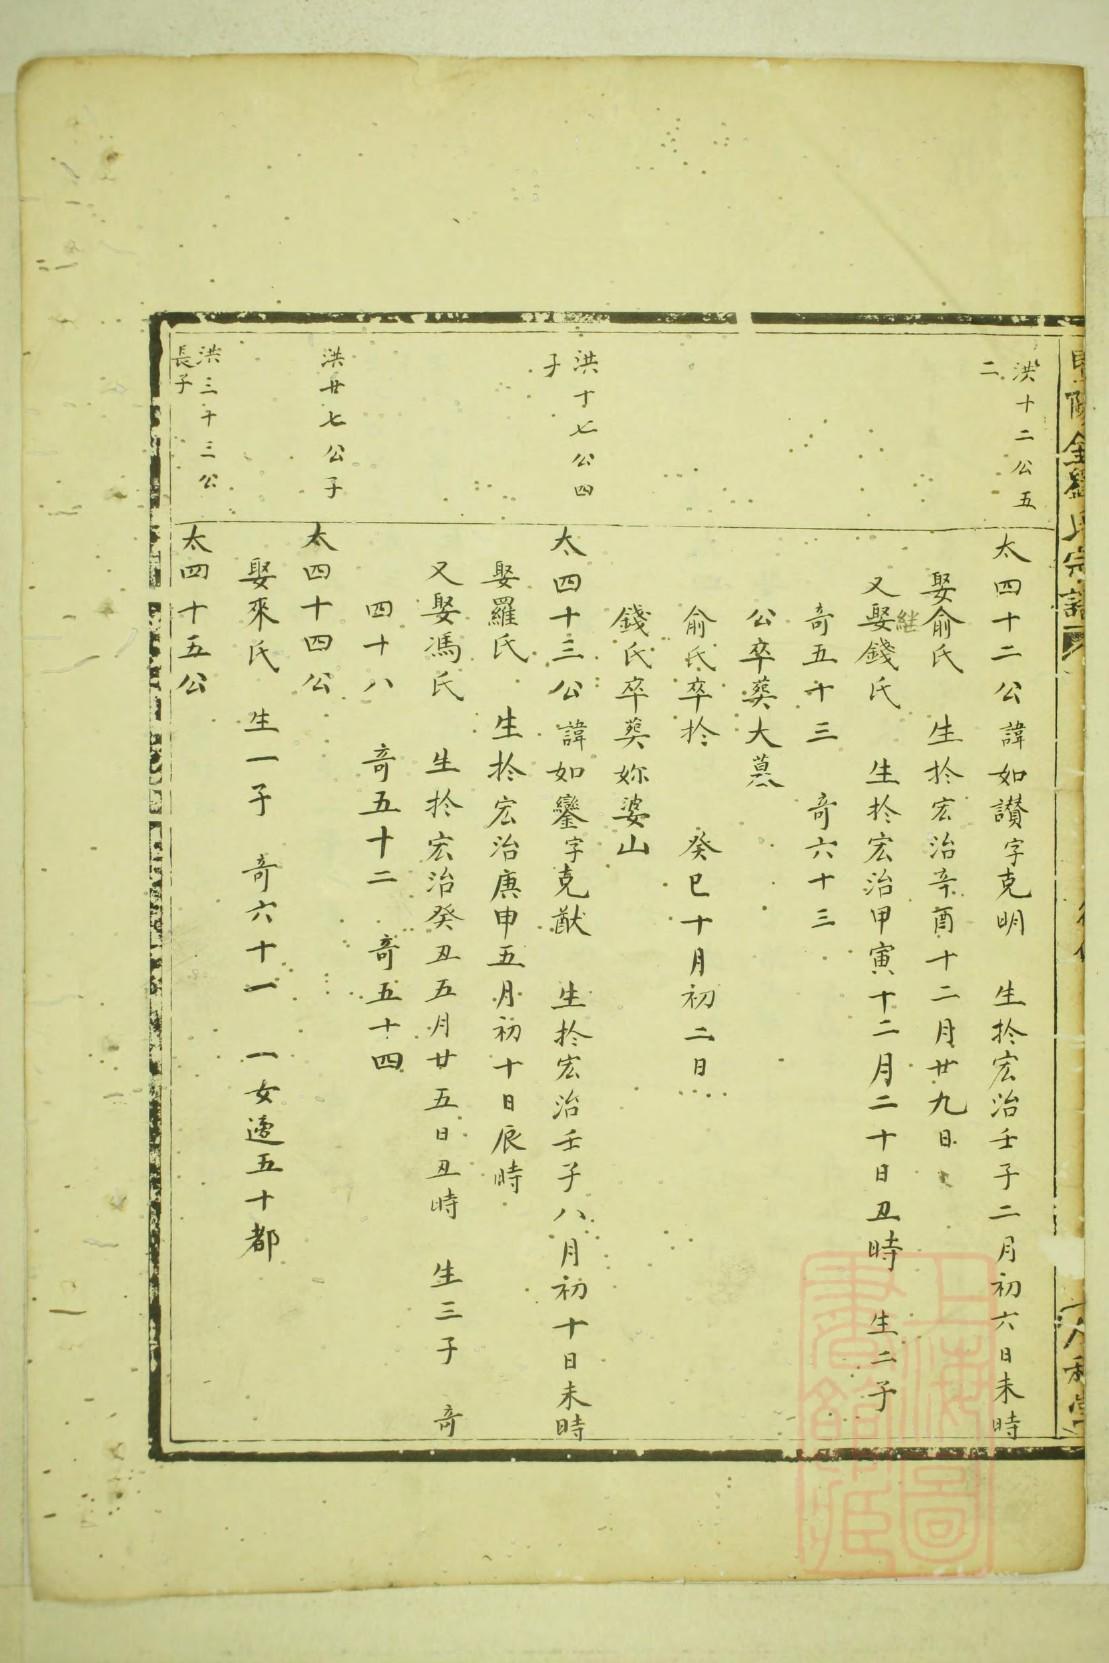 洪十二公五
二
太四十二公諱如讚字克明　生於宏治壬子二月初六日未時
娶俞氏　生於宏治辛酉十二月廿九日
継
又娶錢氏　生於宏治甲寅十二月二十日丑時　生二子
奇五十三　奇六十三
公卒葬大墓
俞氏卒於　癸巳十月初二日
錢氏卒葬妳婆山
洪十七公四
子
太四十三公諱如鑾字克猷　生於宏治壬子八月初十日未時
娶羅氏　生於宏治庚申五月初十日辰時
又娶馮氏　生於宏治癸丑五月廿五日丑時　生三子　奇
四十八　奇五十二　奇五十四
洪廿七公子
太四十四公
娶來氏　生一子　奇六十一　一女適五十都
洪三十三公
長子
太四十五公
上海圖書館藏